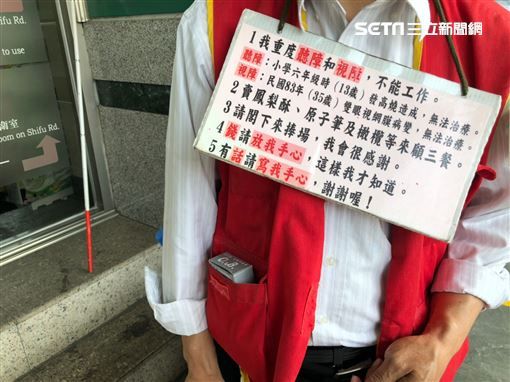 to use
南室
oom on Shifu Rd.
Shifu Rd.
SETN三立新聞網
1 我重度聽障和視障，不能工作。
聽障：小學六年級時（13歲）發高燒造成，無法治療。
視障：民國83年（35歲）雙眼視網膜病變，無法治療。
2 賣鳳梨酥、原子筆及橄欖等來顧三餐。
3 請閣下來捧場，我會很感謝。
4 錢請放我手心，這樣我才知道。
5 有話請寫我手心，謝謝喔！